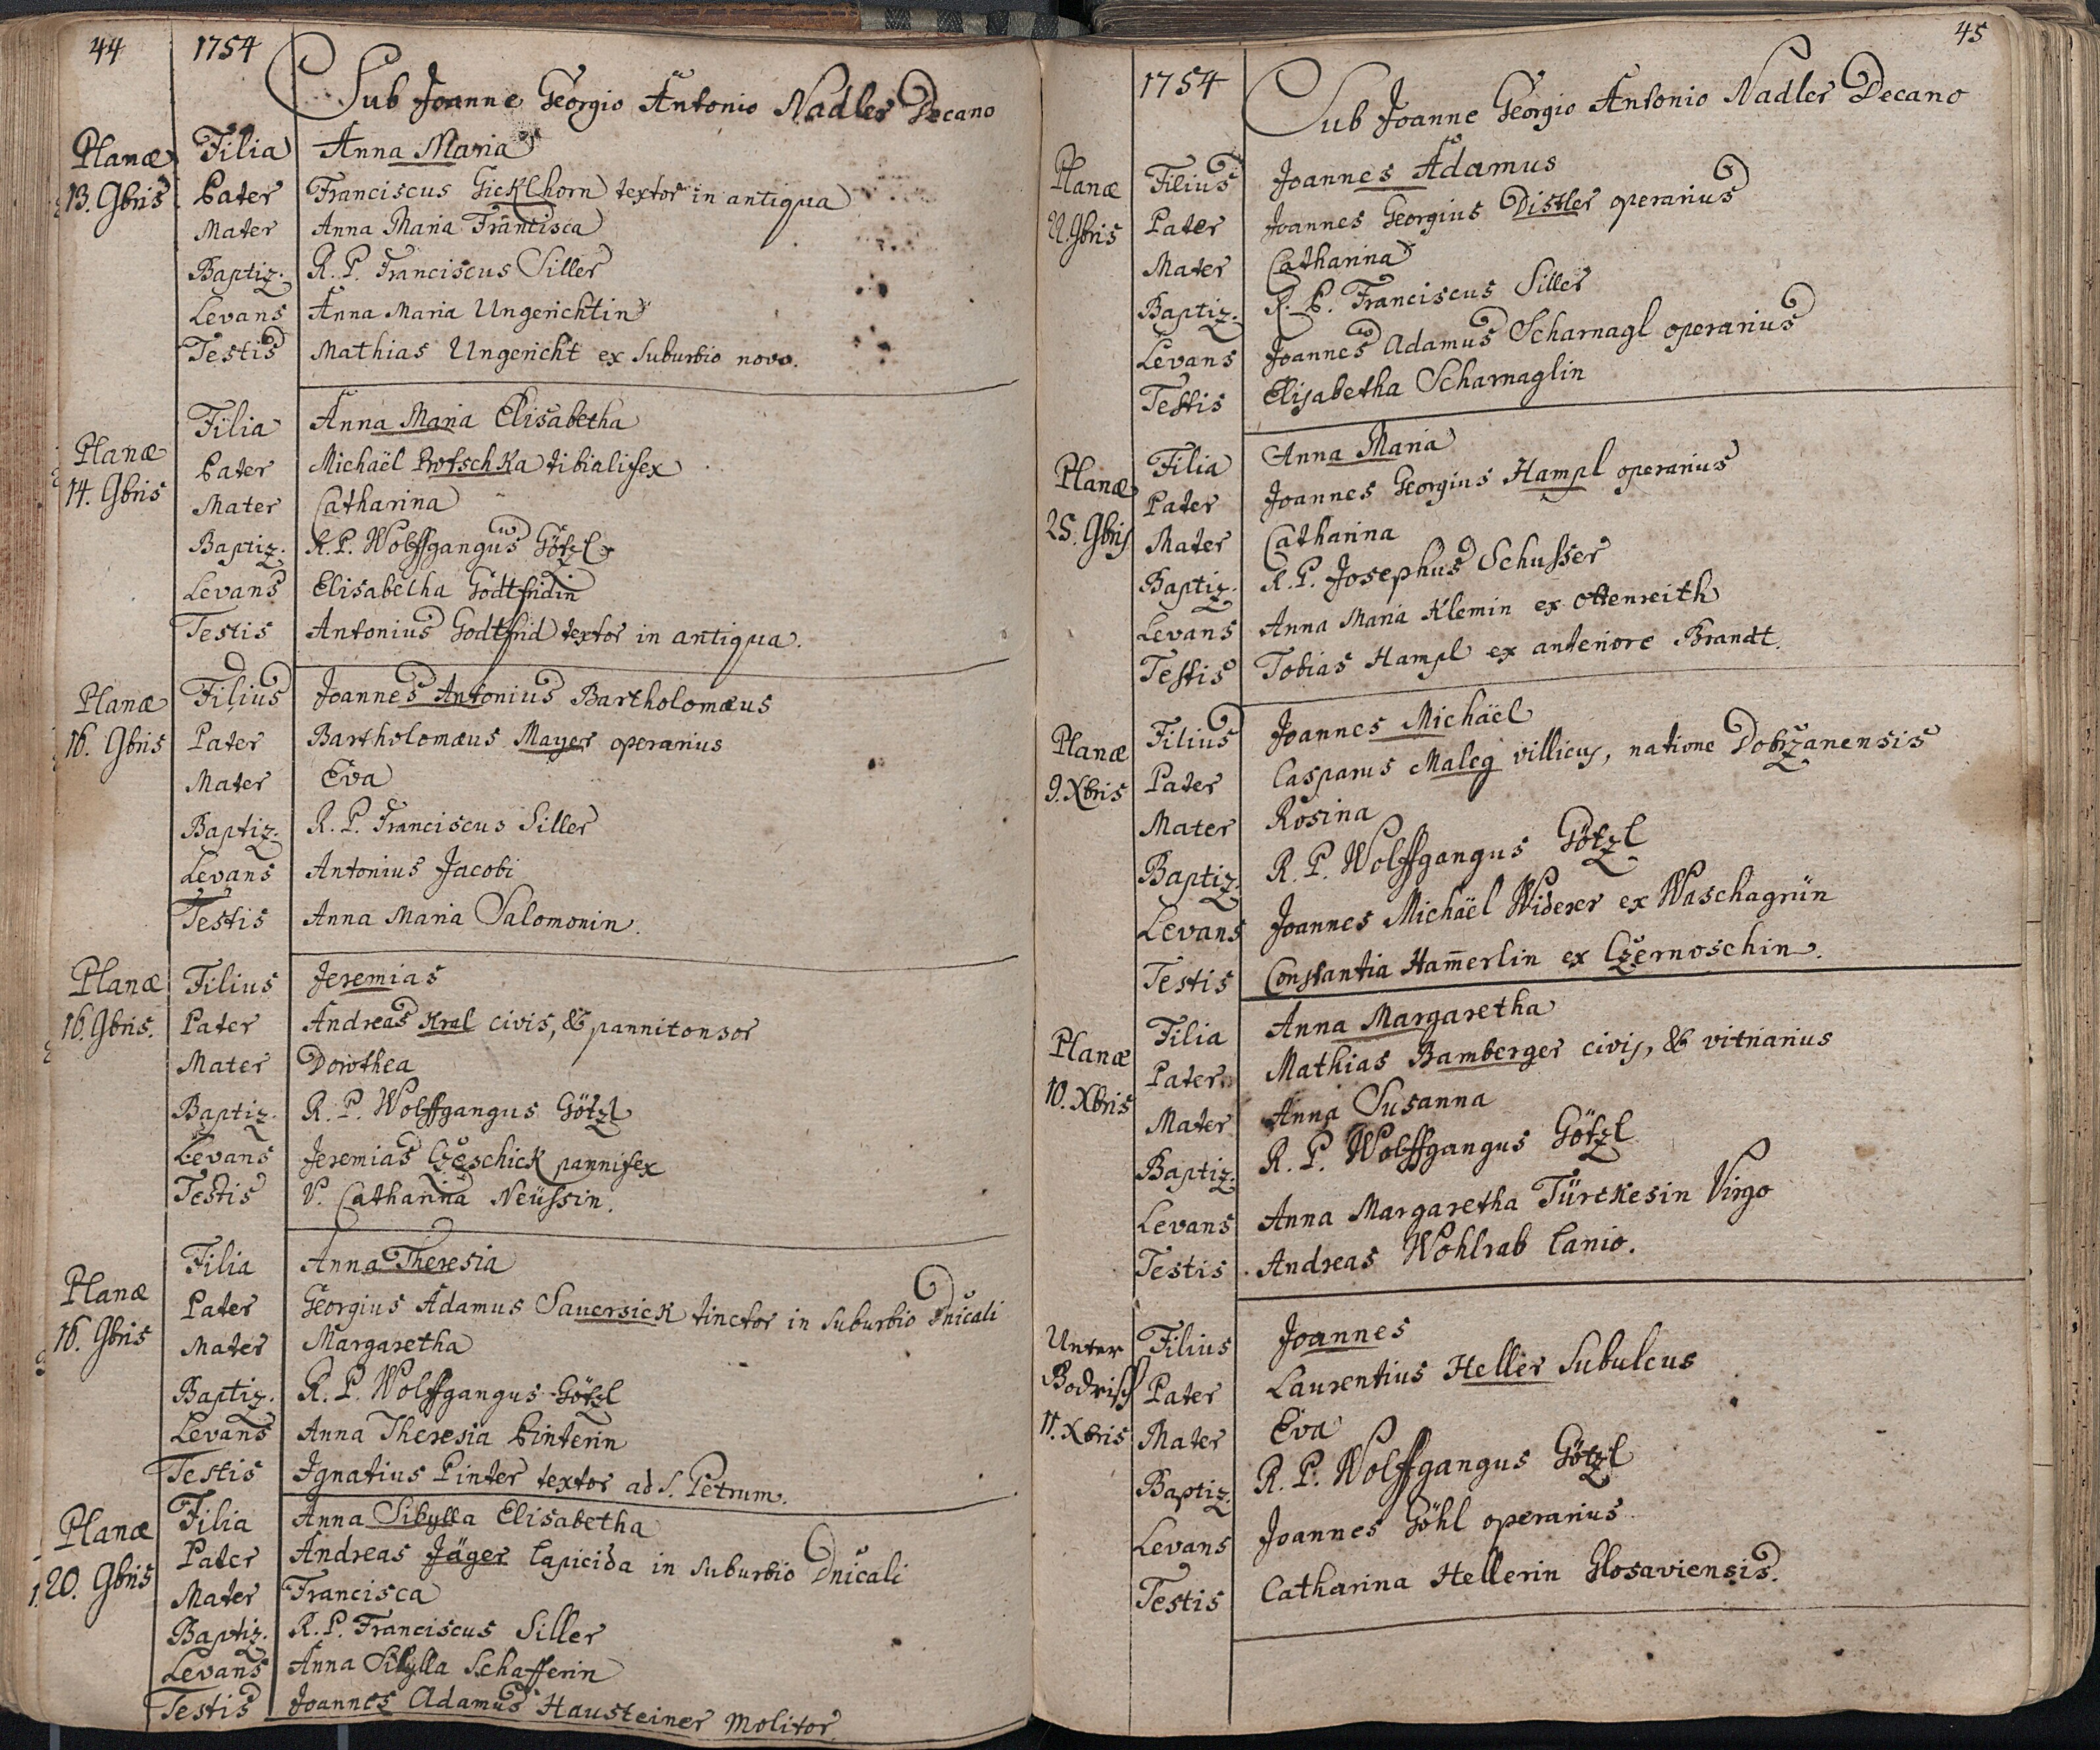 44 1754
Sub Joanne Georgio Antonio Nadler Decano
Planæ Filia Anna Maria
13. 9bris Pater Franciscus Gicklhorn textor in antiqua
Mater Anna Maria Francisca
Baptiz. R. P. Franciscus Siller
Levans Anna Maria Ungerichtin
Testis Mathias Ungericht ex suburbio novo.
Filia Anna Maria Elisabetha
Planæ Pater Michaël Protschka tibialifex
14. 9bris Mater Catharina
Baptiz. R. P. Wolffgangus Götzl
Levans Elisabetha Godtfridin
Testis Antonius Godtfrid textor in antiqua.
Planæ Filius Joannes Antonius Bartholomæus
16. 9bris Pater Bartholomæus Mayer operarius
Mater Eva
Baptiz. R. P. Franciscus Siller
Levans Antonius Jacobi
Testis Anna Maria Salomonin.
Planæ Filius Jeremias
16. 9bris. Pater Andreas Kral civis, & pannitonsor
Mater Dorothea
Baptiz. R. P. Wolffgangus Götzl
Levans Jeremias Czeschick pannifex
Testis V. Catharina Neüssin.
Filia Anna Theresia
Planæ Pater Georgius Adamus Sauersick tinctor in suburbio Dnicali
16. 9bris Mater Margaretha
Baptiz. R. P. Wolffgangus Götzl
Levans Anna Theresia Pinterin
Testis Ignatius Pinter textor ad S. Petrum.
Planæ Filia Anna Sibylla Elisabetha
20. 9bris Pater Andreas Jäger lapicida in suburbio Dnicali
Mater Francisca
Baptiz. R. P. Franciscus Siller
Levans Anna Sibylla Schafferin
Testis Joannes Adamus Hausteiner Molitor
45
1754
Sub Joanne Georgio Antonio Nadler Decano
Planæ Filius Joannes Adamus
22. 9bris Pater Joannes Georgius Distler operarius
Mater Catharina
Baptiz. R. P. Franciscus Siller
Levans Joannes Adamus Scharnagl operarius
Testis Elisabetha Scharnaglin
Planæ Filia Anna Maria
25. 9bris Pater Joannes Georgius Hampl operarius
Mater Catharina
Baptiz. R. P. Josephus Schusser
Levans Anna Maria Klemin ex Ottenreith
Testis Tobias Hampl ex anteriore Brandt.
Planæ Filius Joannes Michaël
9. Xbris Pater Casparus Maleg villicus, natione Dobrzanensis
Mater Rosina
Baptiz. R. P. Wolffgangus Götzl
Levans Joannes Michaël Widerer ex Waschagrün
Testis Constantia Ham̄erlin ex Czernoschin.
Filia Anna Margaretha
Planæ Pater Mathias Bamberger civis, & vitriarius
10. Xbris Mater Anna Susanna
Baptiz. R. P. Wolffgangus Götzl
Levans Anna Margaretha Türckesin Virgo
Testis Andreas Wohlrab lanio.
Unter Filius Joannes
Bodrisch Pater Laurentius Heller Subulcus
11. Xbris Mater Eva
Baptiz. R. P. Wolffgangus Götzl
Levans Joannes Göhl operarius
Testis Catharina Hellerin Glosaviensis.